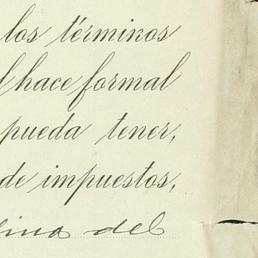 los términos
hace formal
pueda tener,
de impuestos,
del